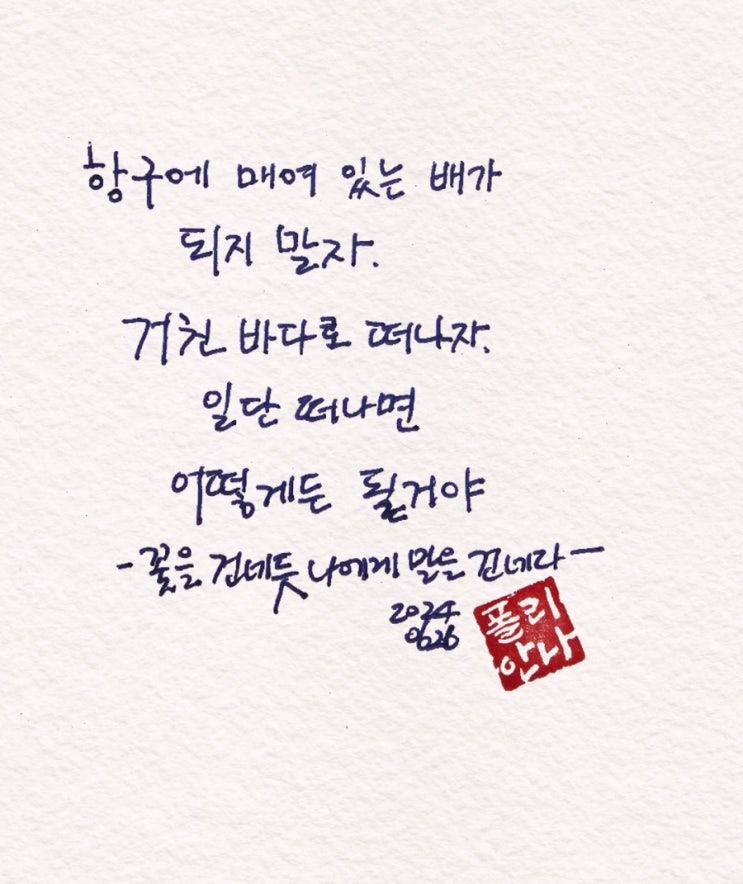 항구에 매여 있는 배가
되지 말자.
거친 바다로 떠나자.
일단 떠나면
어떻게든 될거야
-꽃을 건네듯 나에게 말을 건네라-
2024
0626
폴리
안나